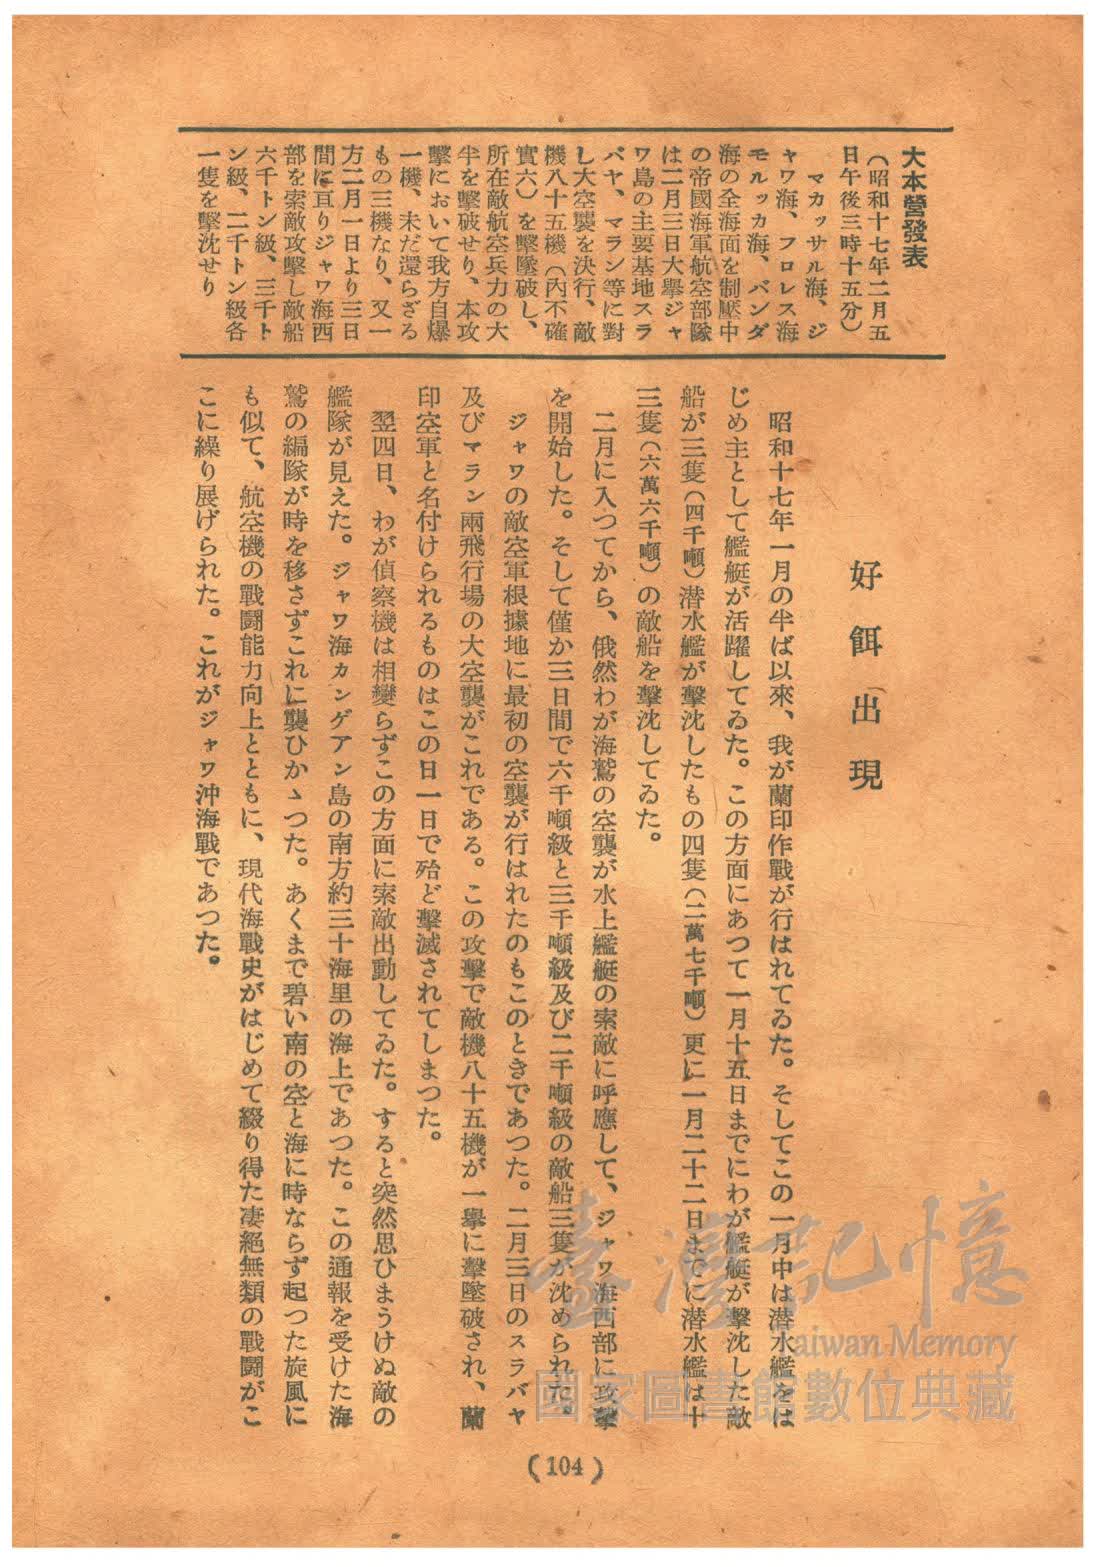 大本營發表
(昭和十七年二月五
日午後三時十五分)
マカッサル海、ジ
ャワ海、フロレス海
モルッカ海、バンダ
海の全海面を制壓中
の帝國海軍航空部隊
は二月三日大擧ジャ
ワ島の主要基地スラ
バヤ、マラン等に對
し大空襲を決行、敵
機八十五機(內不確
實六)を擊墜破し、
所在敵航空兵力の大
半を擊破せり、本攻
擊において我方自爆
一機、未だ還らざる
もの三機なり、又一
方二月一日より三日
間に亘りジャワ海西
部を索敵攻擊し敵船
六千トン級、三千ト
ン級、二千トン級各
一隻を擊沈せり
好餌出現
昭和十七年一月の半ば以來、我が蘭印作戰が行はれてゐた。そしてこの一月中は潜水艦をは
じめ主として艦艇が活躍してゐた。この方面にあつて一月十五日までにわが艦艇が擊沈した敵
船が三隻(四千噸)潜水艦が擊沈したもの四隻(二萬七千噸)更に一月二十二日までに潜水艦は十
三隻(六萬六千噸)の敵船を擊沈してゐた。
二月に入つてから、俄然わが海鷲の空襲が水上艦艇の索敵に呼應して、ジャワ海西部に攻擊
を開始した。そして僅か三日間で六千噸級と三千噸級及び二千噸級の敵船三隻が沈められた。
ジャワの敵空軍根據地に最初の空襲が行はれたのもこのときであつた。二月三日のスラバヤ
及びマラン兩飛行場の大空襲がこれである。この攻擊で敵機八十五機が一擧に擊墜破され、蘭
印空軍と名付けられるものはこの日一日で殆ど擊滅されてしまつた。
翌四日、わが偵察機は相變らずこの方面に索敵出動してゐた。すると突然思ひまうけぬ敵の
艦隊が見えた。ジャワ海カンゲアン島の南方約三十海里の海上であつた。この通報を受けた海
鷲の編隊が時を移さずこれに襲ひかゝつた。あくまで碧い南の空と海に時ならず起つた旋風に
も似て、航空機の戰鬪能力向上とともに、現代海戰史がはじめて綴り得た凄絕無類の戰鬪がこ
こに繰り展げられた。これがジャワ沖海戰であつた。
(104)
臺灣記憶
Taiwan Memory
國家圖書館數位典藏